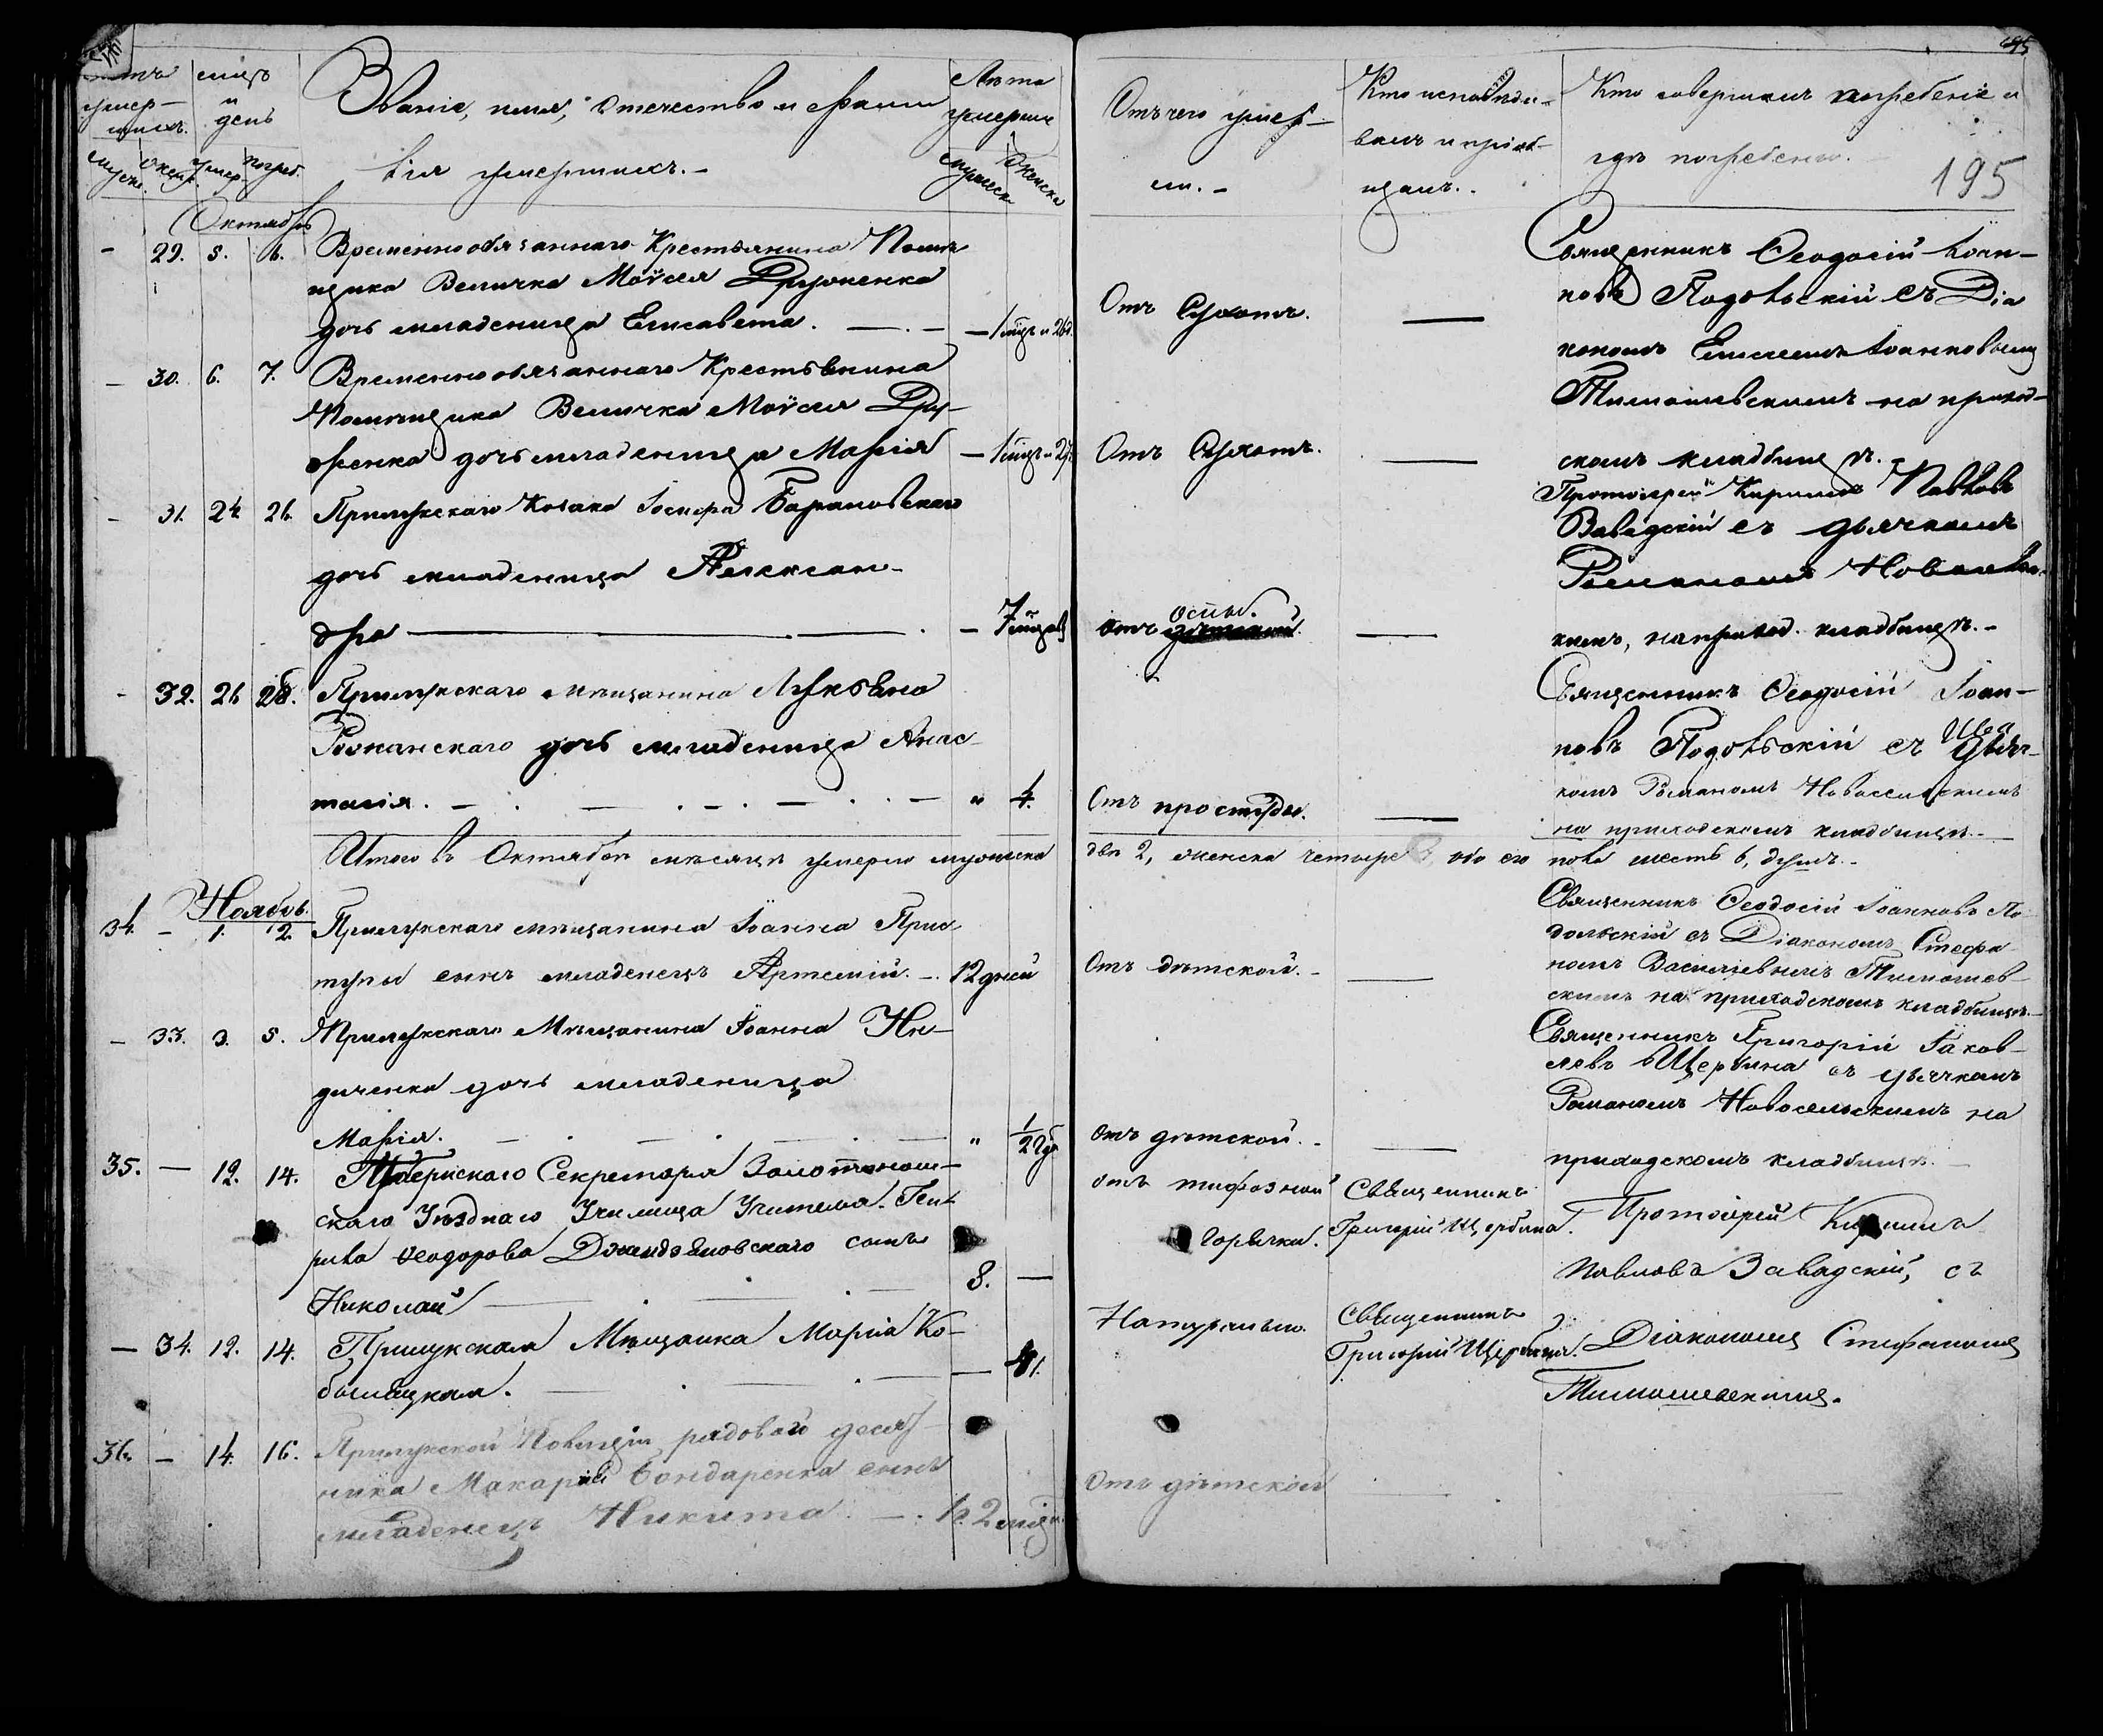 195
умер-
шихъ.
мцъ
и
день
Званіе, имя, отчество и фами
лія умершихъ.-
Лѣта
умерши
Отъ чего умер-
ли.-
Кто исповѣды-
валъ и пріоб-
щалъ.-
Кто совершалъ погребеніе и
гдѣ погребены.
195
Октябрь
- 29. 5. 6. Временнообязаннаго Крестьянина Помѣ
щика Велички Моѵсея
дочь младеница Елисавета. — . — — 1 мцъ и 26 д.
Отъ Сухотъ. —
Священникъ Ѳеодосій Іоан-
новъ Подольскій съ Діа
кономъ
Тимошевскимъ на приход-
скомъ кладбищѣ.
— 30. 6. 7. Временнообязаннаго Крестьянина
Помѣщика Велички Моѵсея
дочь младеница Марія — 1 мцъ и 27
Отъ Сухотъ. —
- 31. 24 26. Прилукскаго Козака Іосифа Барановскаго
дочь младеница Алексан-
дра — . — . — 7 мцовъ
отъ оспы. —
Протоіерей Кирилъ Павловъ
Завадскій съ дьячкомъ
Романомъ
кимъ, на приход. кладбищѣ.-
- 32. 26 28. Прилукскаго мѣщанина Лукьяна
дочь младеница Анас-
тасія. — . — . — . — . — „ 4.
Отъ простуды. —
Священникъ Ѳеодосій Іоан-
новъ Подольскій съ дьяч-
комъ Романомъ Новосельскимъ
на приходскомъ кладбищѣ.-
Итого въ Октябрѣ мѣсяцѣ умерло мужеска
два 2, женска четыре обоего пола шесть 6, душъ.-
Ноябрь.
34. - 1. 2. Прилукскаго мѣщанина Іоанна При
тулы сынъ младенецъ Артемій. — . 12 дней
Отъ дѣтской.- —
Священникъ Ѳеодосій Іоанновъ По
дольскій съ Діакономъ Стефа
номъ Васильевымъ Тимошев-
скимъ на приходскомъ кладбищѣ.-
— 33. 3. 5. Прилукскаго Мѣщанина Іоанна Ни-
диченка дочь младеница
Марія. — . — . — . — „ 1/2 год
отъ дѣтской.- —
Священникъ Григорій Іаков-
левъ Щербина съ дьячкомъ
Романомъ Новосельскимъ на
приходскомъ кладбищѣ.
35. — 12. 14. Губернскаго Секретаря Золотонош-
скаго Уѣзднаго Училища Учителя
Ѳеодорова сынъ
Николай — . — . — 8. —
отъ тифозной
горячки.
Священникъ
Григорій Щербина.
Протоіерей Кирилъ
Павловъ Завадскій, съ
— 34. 12. 14. Прилукская Мѣщанка Марія Ко-
— . — . — —
Натурально.
Священникъ
Григорій Щербина.
Діакономъ Стефаномъ
Тимошевскимъ.
36. — 14. 16. Прилукской Полиціи рядоваго десят
ника Макарія Бондаренка сынъ
младенецъ Никита. — . 2 мцд.
Отъ дѣтской —